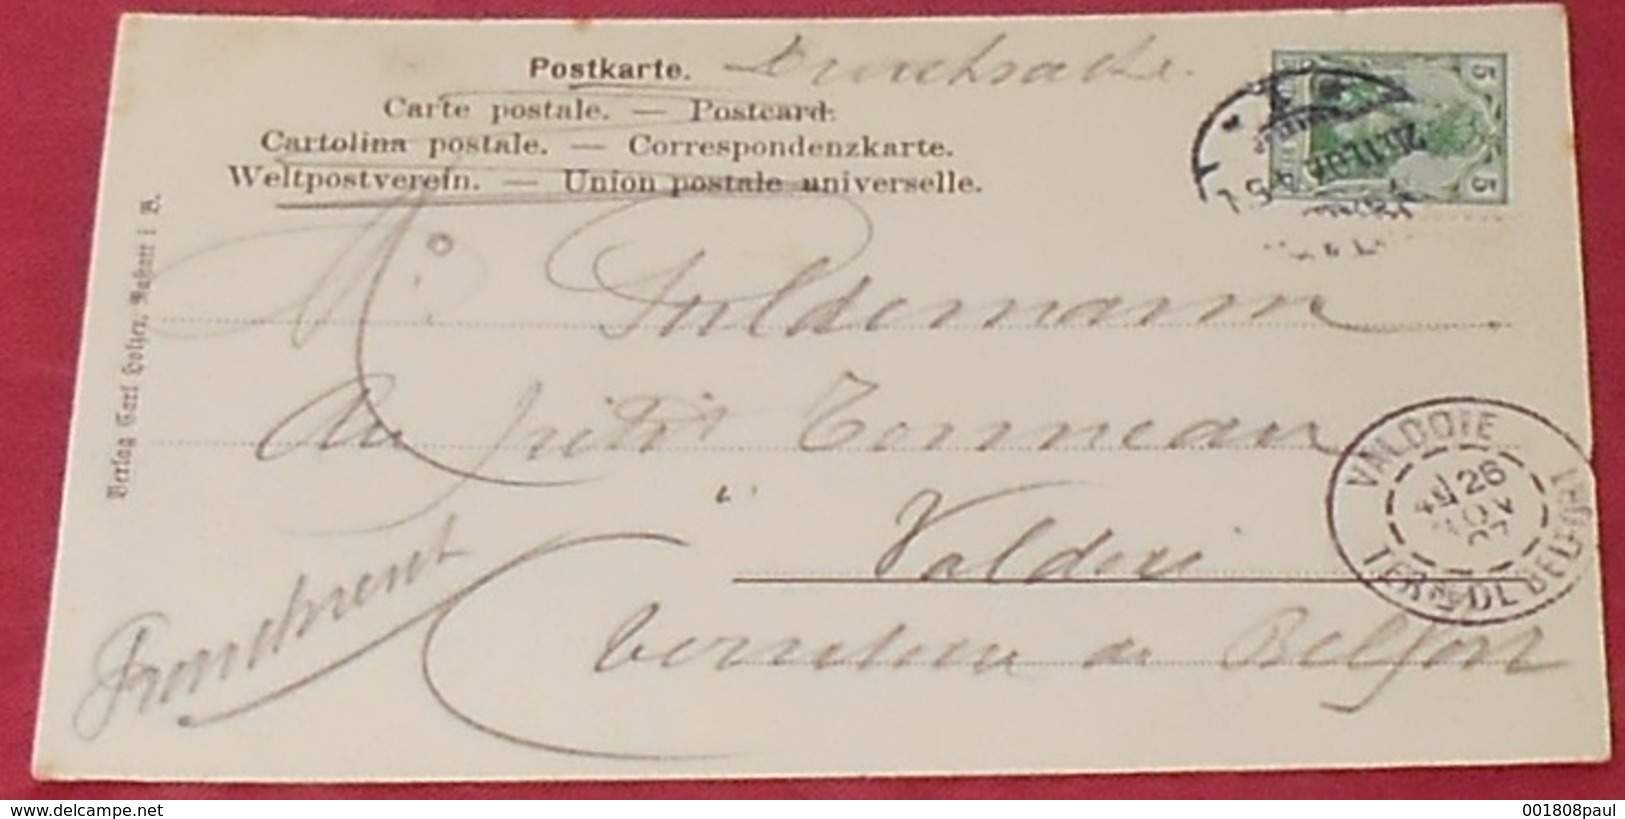 Postkarte. Drucksache.
Carte postale. — Postcard.
Cartolina postale. — Correspondenzkarte.
Weltpostverein. — Union postale universelle.
5 5
Verlag Carl Holzer, Rastatt i. B.
VALDOIE
26
NOV
07
TERRE DE BELFORT
Mr Muldemann
Au petit Tonneau
" Valdoie
Territoire de Belfort
Frankreich
www.delcampe.net
001808paul